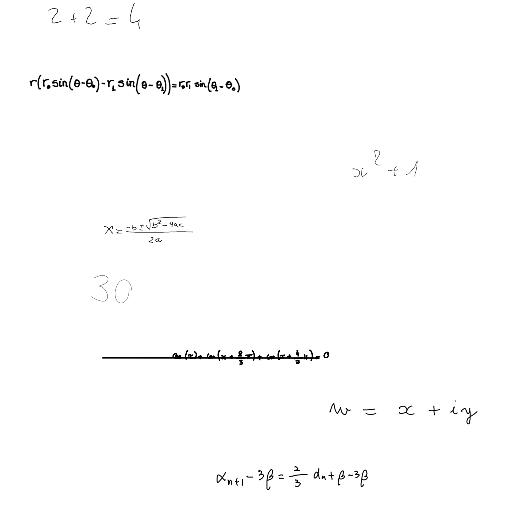 2 + 2 = 4
r(r₀ sin(θ-θ₀) - r₁ sin(θ-θ₁)) = r₀r₁ sin(θ₁-θ₀)
x² + 1
x = (-b ± √(b² - 4ac)) / 2a
30
w = x + iy
α_{n+1} - 3β = 2/3 d_n + β - 3β